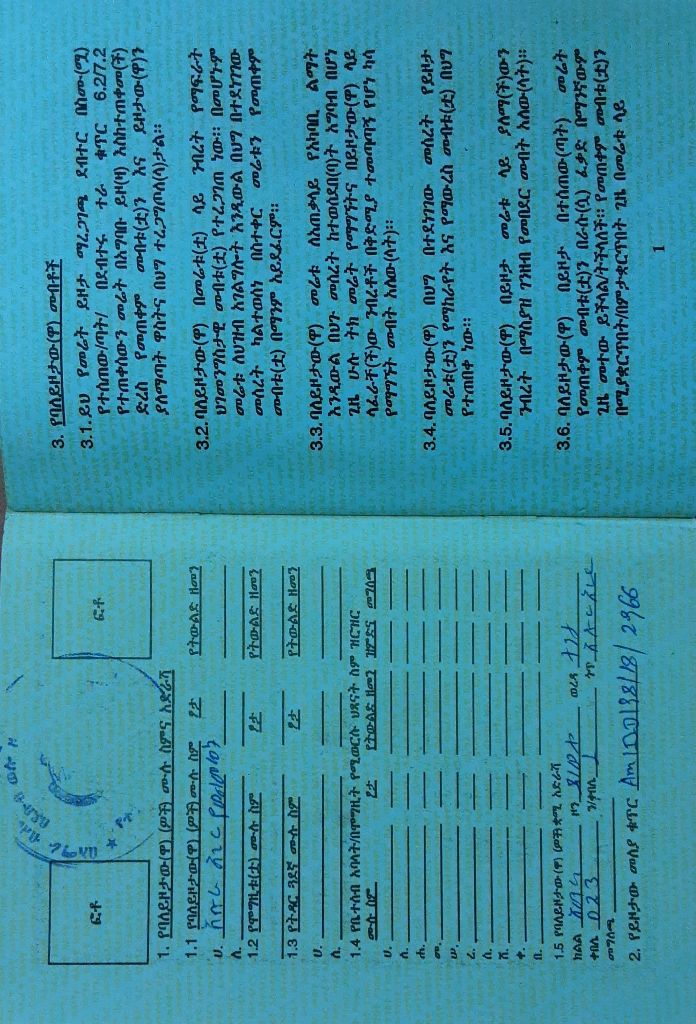 ፎቶ
ፎቶ
1. የባለይዞታው(ዋ) (ዎች) ሙሉ ስምና አድራሻ
1.1 የባለይዞታው(ዋ) (ዎች) ሙሉ ስም ፆታ የትውልድ ዘመን
ሀ.
ለ.
1.2 የሞግዚቱ(ቷ) ሙሉ ስም ፆታ የትውልድ ዘመን
1.3 የትዳር ጓደኛ ሙሉ ስም ፆታ የትውልድ ዘመን
ሀ.
ለ.
1.4 የቤተሰብ አባላት/በሞግዚት የሚወርሱ ህጻናት ስም ዝርዝር
ሙሉ ስም ፆታ የትውልድ ዘመን ዝምድና መግለጫ
ሀ.
ለ.
ሐ.
መ.
ሠ.
ረ.
ሰ.
ሸ.
ቀ.
በ.
1.5 የባለይዞታው(ዋ) (ዎች) ቋሚ አድራሻ
ክልል አማራ ዞን ወረዳ
ቀበሌ 023
መግለጫ
2. የይዞታው መለያ ቁጥር
3. የባለይዞታው(ዋ) መብቶች
3.1. ይህ የመሬት ይዞታ ማረጋገጫ ደብተር በስሙ(ሟ)
የተሰጠው/ጣት/ በደብተሩ ተራ ቁጥር 6.2/7.2
የተጠቀሰውን መሬት በአግባቡ ይዞ(ዛ) እስከተጠቀመ(ች)
ድረስ የመጠቀም መብቱ(ቷ)ን እና ይዞታው(ዋ)ን
ያለማጣት ዋስትና በህግ ተረጋግጦለ(ላ)ታል።
3.2. ባለይዞታው(ዋ) በመሬቱ(ቷ) ላይ ንብረት የማፍራት
ህገመንግስታዊ መብቱ(ቷ) የተረጋገጠ ነው። በመሆኑም
መሬቱ ለህዝብ አገልግሎት እንዲውል በህግ በተደነገገው
መሰረት ካልተወሰነ በስተቀር መሬቱን የመጠቀም
መብቱ(ቷ) በማንም አይደፈርም።
3.3. ባለይዞታው(ዋ) መሬቱ ለአጠቃላይ የአካባቢ ልማት
እንዲውል በህጉ መሰረት ከተወሰደበ(ባ)ት አግባብ በሆነ
ጊዜ ሁሉ ትክ መሬት የማግኘትና በይዞታው(ዋ) ላይ
ላፈራ(ች)ው ንብረቶች በቅድሚያ ተመጣጣኝ የሆነ ካሳ
የማግኘት መብት አለው(ላት)።
3.4. ባለይዞታው(ዋ) በህግ በተደነገገው መሰረት የይዞታ
መሬቱ(ቷ)ን የማከራየት እና የማውረስ መብቱ(ቷ) በህግ
የተጠበቀ ነው።
3.5. ባለይዞታው(ዋ) በይዞታ መሬቱ ላይ ያለማ(ች)ውን
ንብረት በማስያዝ ገንዘብ የመበደር መብት አለው(ላት)።
3.6. ባለይዞታው(ዋ) በይዞታ በተሰጠው(ጣት) መሬት
የመጠቀም መብቱ(ቷ)ን በራሱ(ሷ) ፈቃድ በማንኛውም
ጊዜ መተው ይችላል/ትችላለች። የመጠቀም መብቱ(ቷ)ን
በሚያቋርጥበት/በምታቋርጥበት ጊዜ በመሬቱ ላይ
1